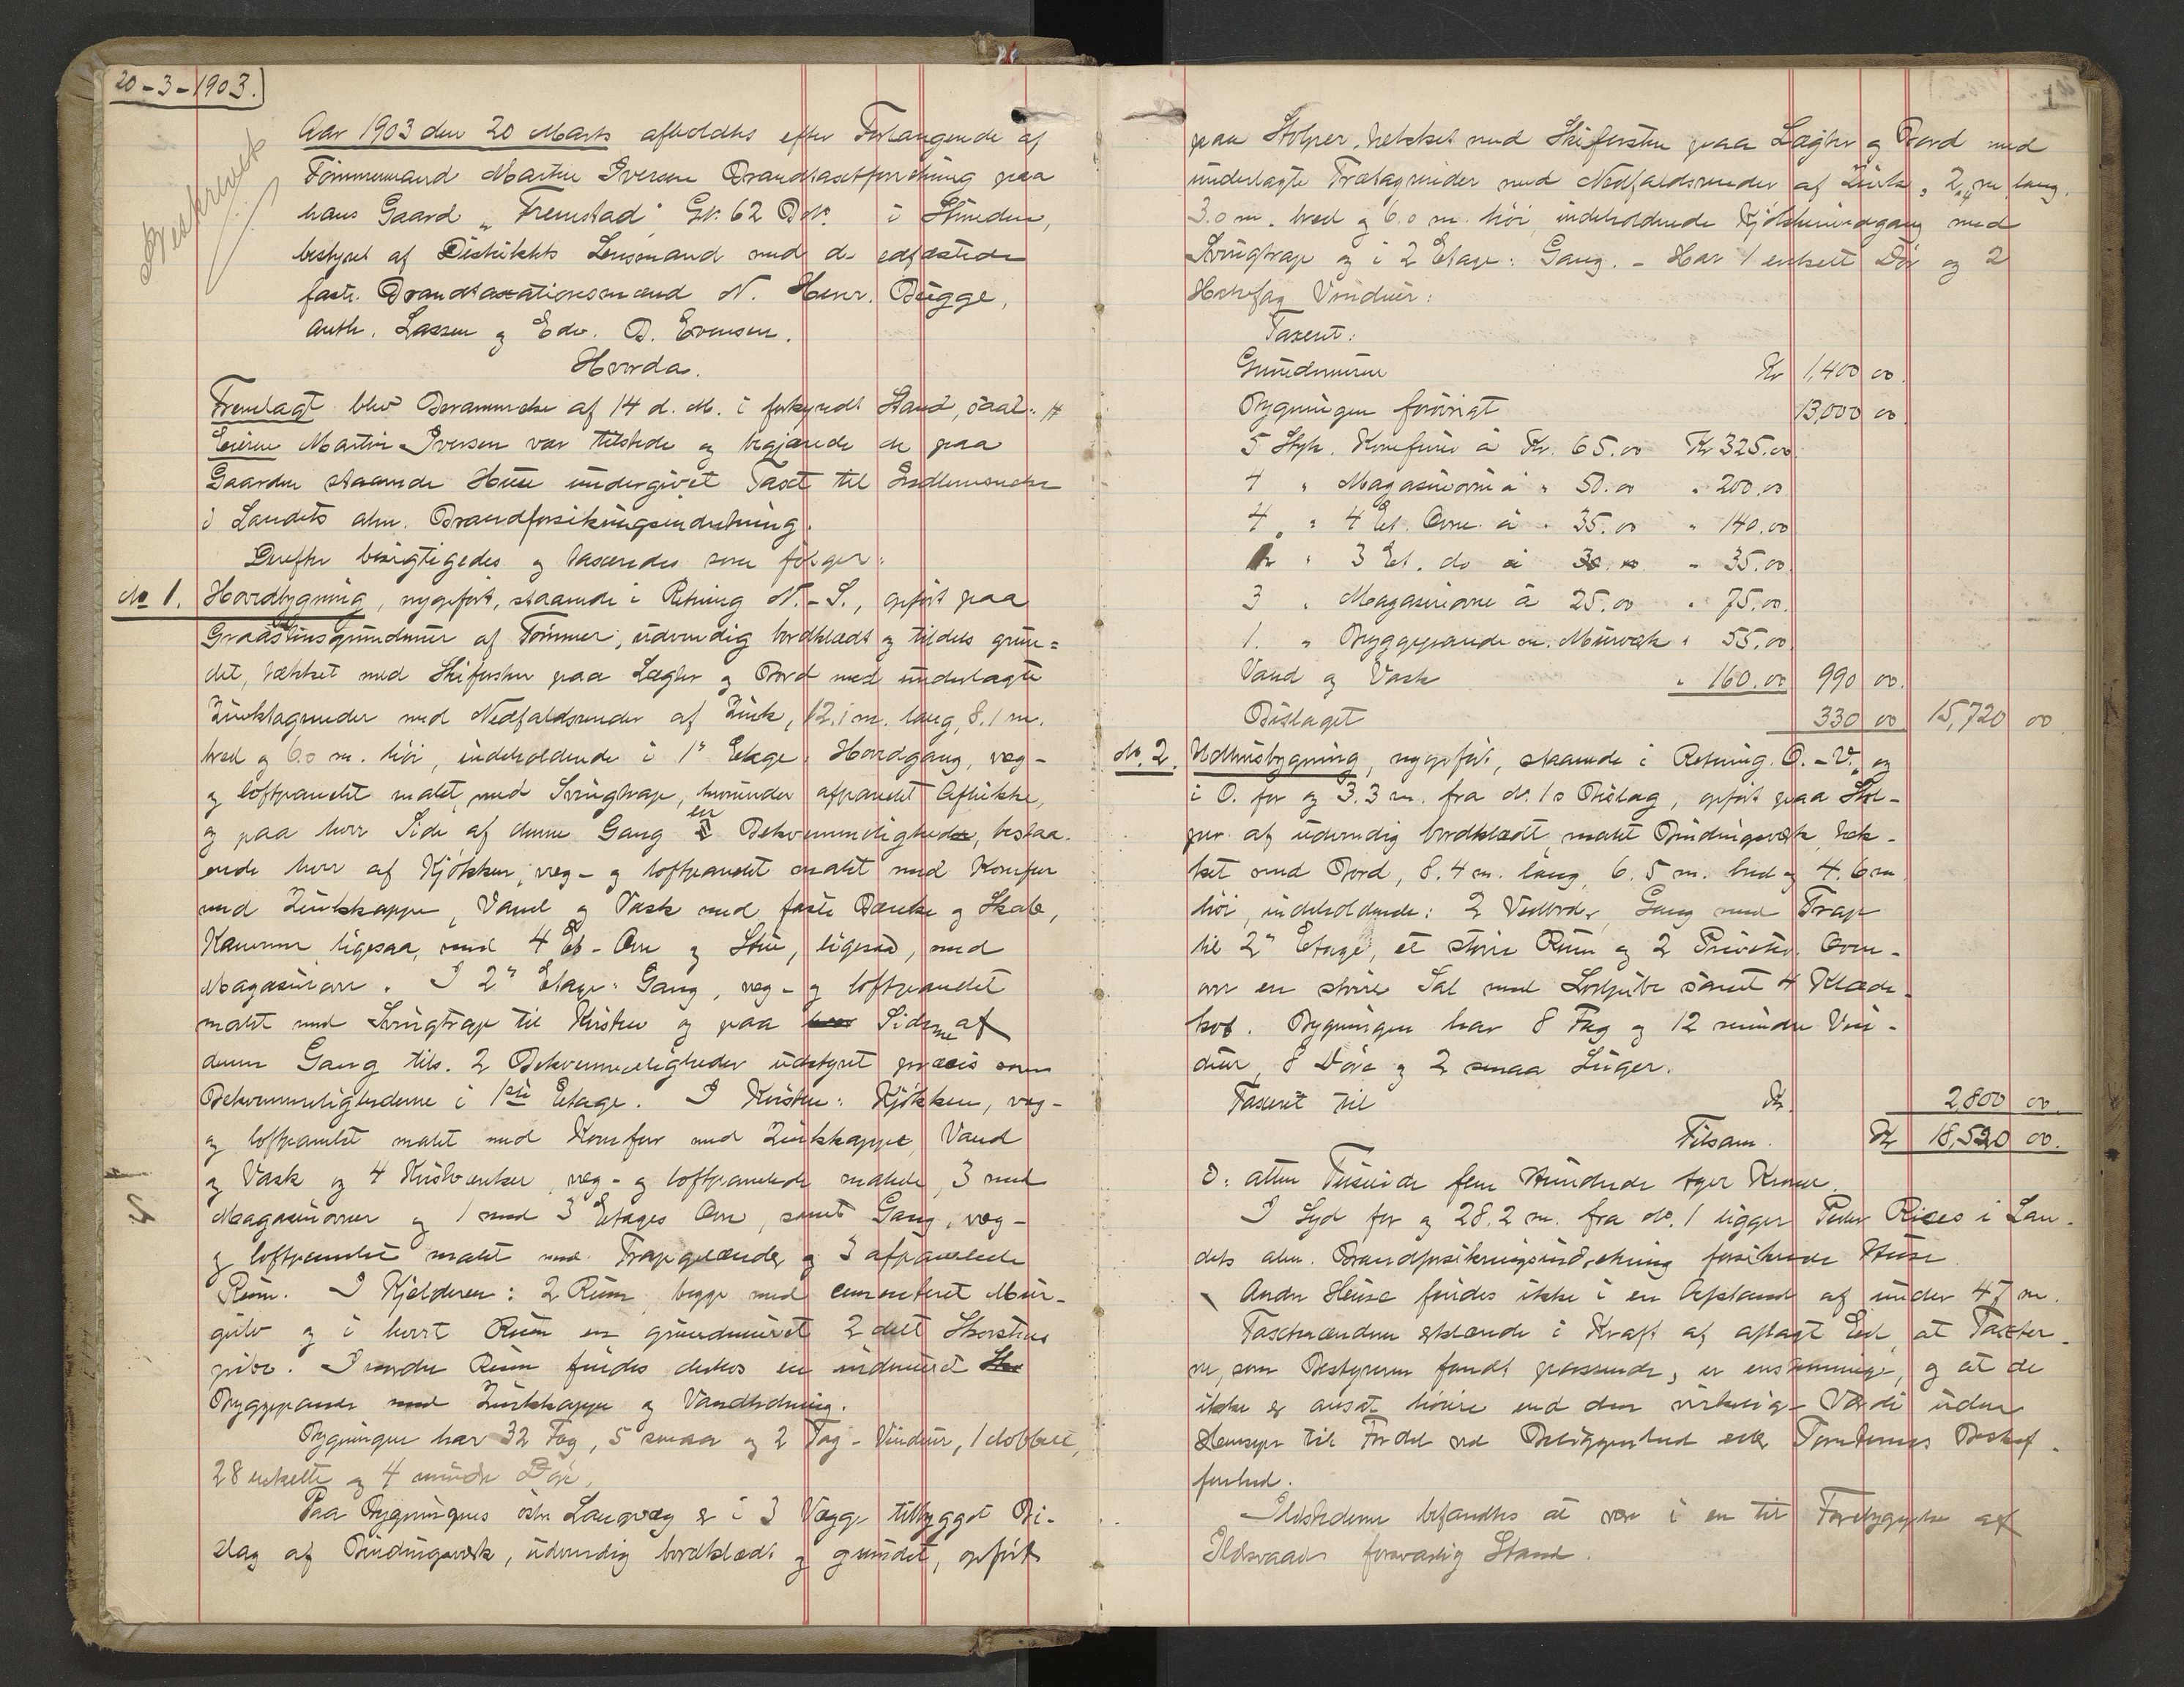 20-3-1903.
Beskrevet
Aar 1903 den 20 Marts afholdtes efter Forlangende af
Tømmermand Martin Iversen Brandtaxtforretning paa
hans Gaard „Fremstad“ G.No. 62 B.No. i Strinden,
bestyret af Distrikts Lensmand med de edfæstede
faste Brandtaxationsmænd N. Henr. Bügge,
Anth. Lassen og Edv. B. Evensen.
Hvorda.
Fremlagt blev Berammelse af 14 d. M. i forkyndt Stand, saal. #
Eieren Martin Iversen var tilstede og begjærede de paa
Gaarden staaende Huse undergivet Taxt til Indlemmelse
i Landets alm. Brandforsikringsindretning.
Derefter besigtigedes og taxeredes som følger:
No 1. Hovedbygning, nyopført, staaende i Retning N.-S., opført paa
Graastensgrundmur af Tømmer, udvendig bordklædt og tildels grun=
det, tækket med Skifersten paa Lægter og Bord med underlagte
Zinktagrender med Nedfaldsrender af Zink, 12.1 m. lang, 8.1 m.
bred og 6.0 m. høi, indeholdende i 1ste Etage: Hovedgang, væg-
og loftpanelt malt, med Svingtrap, hvorunder afpanelt Aflukke,
og paa hver Side af denne Gang en Bekvemmelighed, bestaa-
ende hver af Kjøkken, væg- og loftpanelet malt med Komfur
med Zinkkappe, Vand og Vask med faste Bænke og Skabe,
Kammer ligesaa, med 4 Et-Ovn og Stue, ligesaa, med
Magasinovn. I 2den Etage: Gang, væg- og loftpanelet
malt med Svingtrap til Kvisten og paa Siderne af
denne Gang tils. 2 Bekvemmeligheder udstyret præcis som
Bekvemmelighederne i 1ste Etage. I Kvisten: Kjøkken, væg-
og loftpanelet malt med Komfur med Zinkkappe, Vand
og Vask og 4 Kvistværelser, væg- og loftpanelede malede, 3 med
Magasinovner og 1 med 3 Etages Ovn, samt Gang, væg-
og loftpanelet malt med Trapgelænder og 3 afpanelede
Rum. I Kjelderen: 2 Rum, begge med cementeret Mur-
gulv og i hvert Rum en grundmuret 2 delt Skorstens
pibe. I nordre Rum findes derhos en indmuret
Bryggepande med Zinkkappe og Vandledning.
Bygningen har 32 Fag, 5 smaa og 2 Tag-Vinduer, 1 dobbelt,
28 enkelte og 4 mindre Døre.
Paa Bygningens østre Langvæg er i 3 Vægge tilbygget Bi-
slag af Bindingsværk, udvendig bordklædt og grundet, opført
paa Stolper, tækket med Skifersten paa Lægter og Bord med
underlagte Trætagrender med Nedfaldsrender af Zink, 2.4 m. lang,
3.0 m. bred og 6.0 m. høi, indeholdende Kjøkkenindgang med
Svingtrap og i 2 Etage: Gang. - Har 1 enkelt Dør og 2
Halvfag Vinduer:
Taxeret:
Grundmuren Kr 1,400 00.
Bygningen forøvrigt 13,000 00.
5 Styk. Komfurer à Kr. 65.00 Kr 325.00
4 " Magasinovne à " 50.00 " 200.00
4 " 4 Et. Ovne à " 35.00 " 140.00
" 3 Et. do à " 35.00.
3 " Magasinovne à 25.00 " 75.00.
1. " Bryggepande m. Murværk " 55.00.
Vand og Vask " 160.00 990 00.
Bislaget 330 00 15,720 00
No. 2. Udhusbygning, nyopført, staaende i Retning O.-V. og
i O. for og 3.3 m. fra No. 1s Bislag, opført paa Stol-
per af udvendig bordklædt malt Bindingsværk, tæk-
ket med Bord, 8.4 m. lang, 6.5 m. bred og 4.6 m
høi, indeholdende: 2 Vedboder, Gang med Trap
til 2den Etage, et større Rum og 2 Privéter. Oven-
over en større Sal med Luftpibe samt 4 Klæde-
bod. Bygningen har 8 Fag og 12 mindre Vin-
duer, 8 Døre og 2 smaa Luger.
Taxeret til Kr. 2,800 00.
Tilsam. Kr 18,520 00.
ɔ: atten Tusinde fem Hundrede tyve Kroner.
I Syd for og 28.2 m. fra No. 1 ligger Peder Rises i Lan-
dets alm. Brandforsikringsindretning forsikrede Huse
Andre Huse findes ikke i en Afstand af under 47 m.
Taxtmændene erklærede i Kraft af aflagt Eed, at Taxter-
ne, som Bestyreren fandt passende, er enstemmige, og at de
ikke er ansat høiere end den virkelige Værdi uden
Hensyn til Fordel ved Beliggenhed eller Tomternes Beskaf-
fenhed.
Ildstederne befandtes at være i en til Forebyggelse af
Ildsvaade forsvarlig Stand.